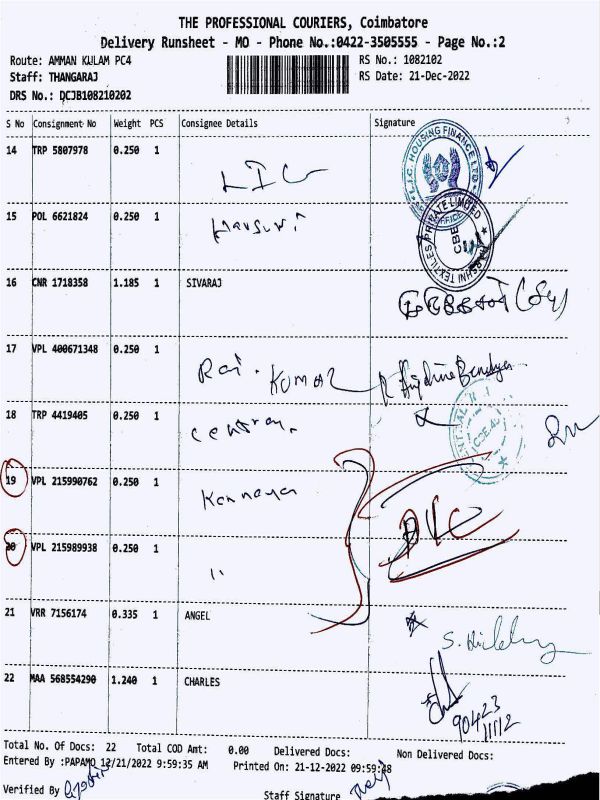 THE PROFESSIONAL COURIERS, Coimbatore
Delivery Runsheet - MO - Phone No.:0422-3505555 - Page No.:2
Route: AMMAN KULAM PC4 RS No.: 1082102
Staff: THANGARAJ RS Date: 21-Dec-2022
DRS No.: DCJB108210202
S No Consignment No Weight PCS Consignee Details Signature
14 TRP 5807978 0.250 1 LIC L.I.C. HOUSING FINANCE LTD
15 POL 6621824 0.250 1 TEXTILES PRIVATE LIMITED OFFICE CBE
16 CNR 1718358 1.185 1 SIVARAJ
17 VPL 400671348 0.250 1 Raj. Kumar
18 TRP 4419405 0.250 1 central
19 VPL 215990762 0.250 1 Kannaya
20 VPL 215989938 0.250 1 "
21 VRR 7156174 0.335 1 ANGEL
22 MAA 568554290 1.240 1 CHARLES
90423
11112
Total No. Of Docs: 22 Total COD Amt: 0.00 Delivered Docs: Non Delivered Docs:
Entered By :PAPAMO 12/21/2022 9:59:35 AM Printed On: 21-12-2022 09:59:48
Verified By Staff Signature